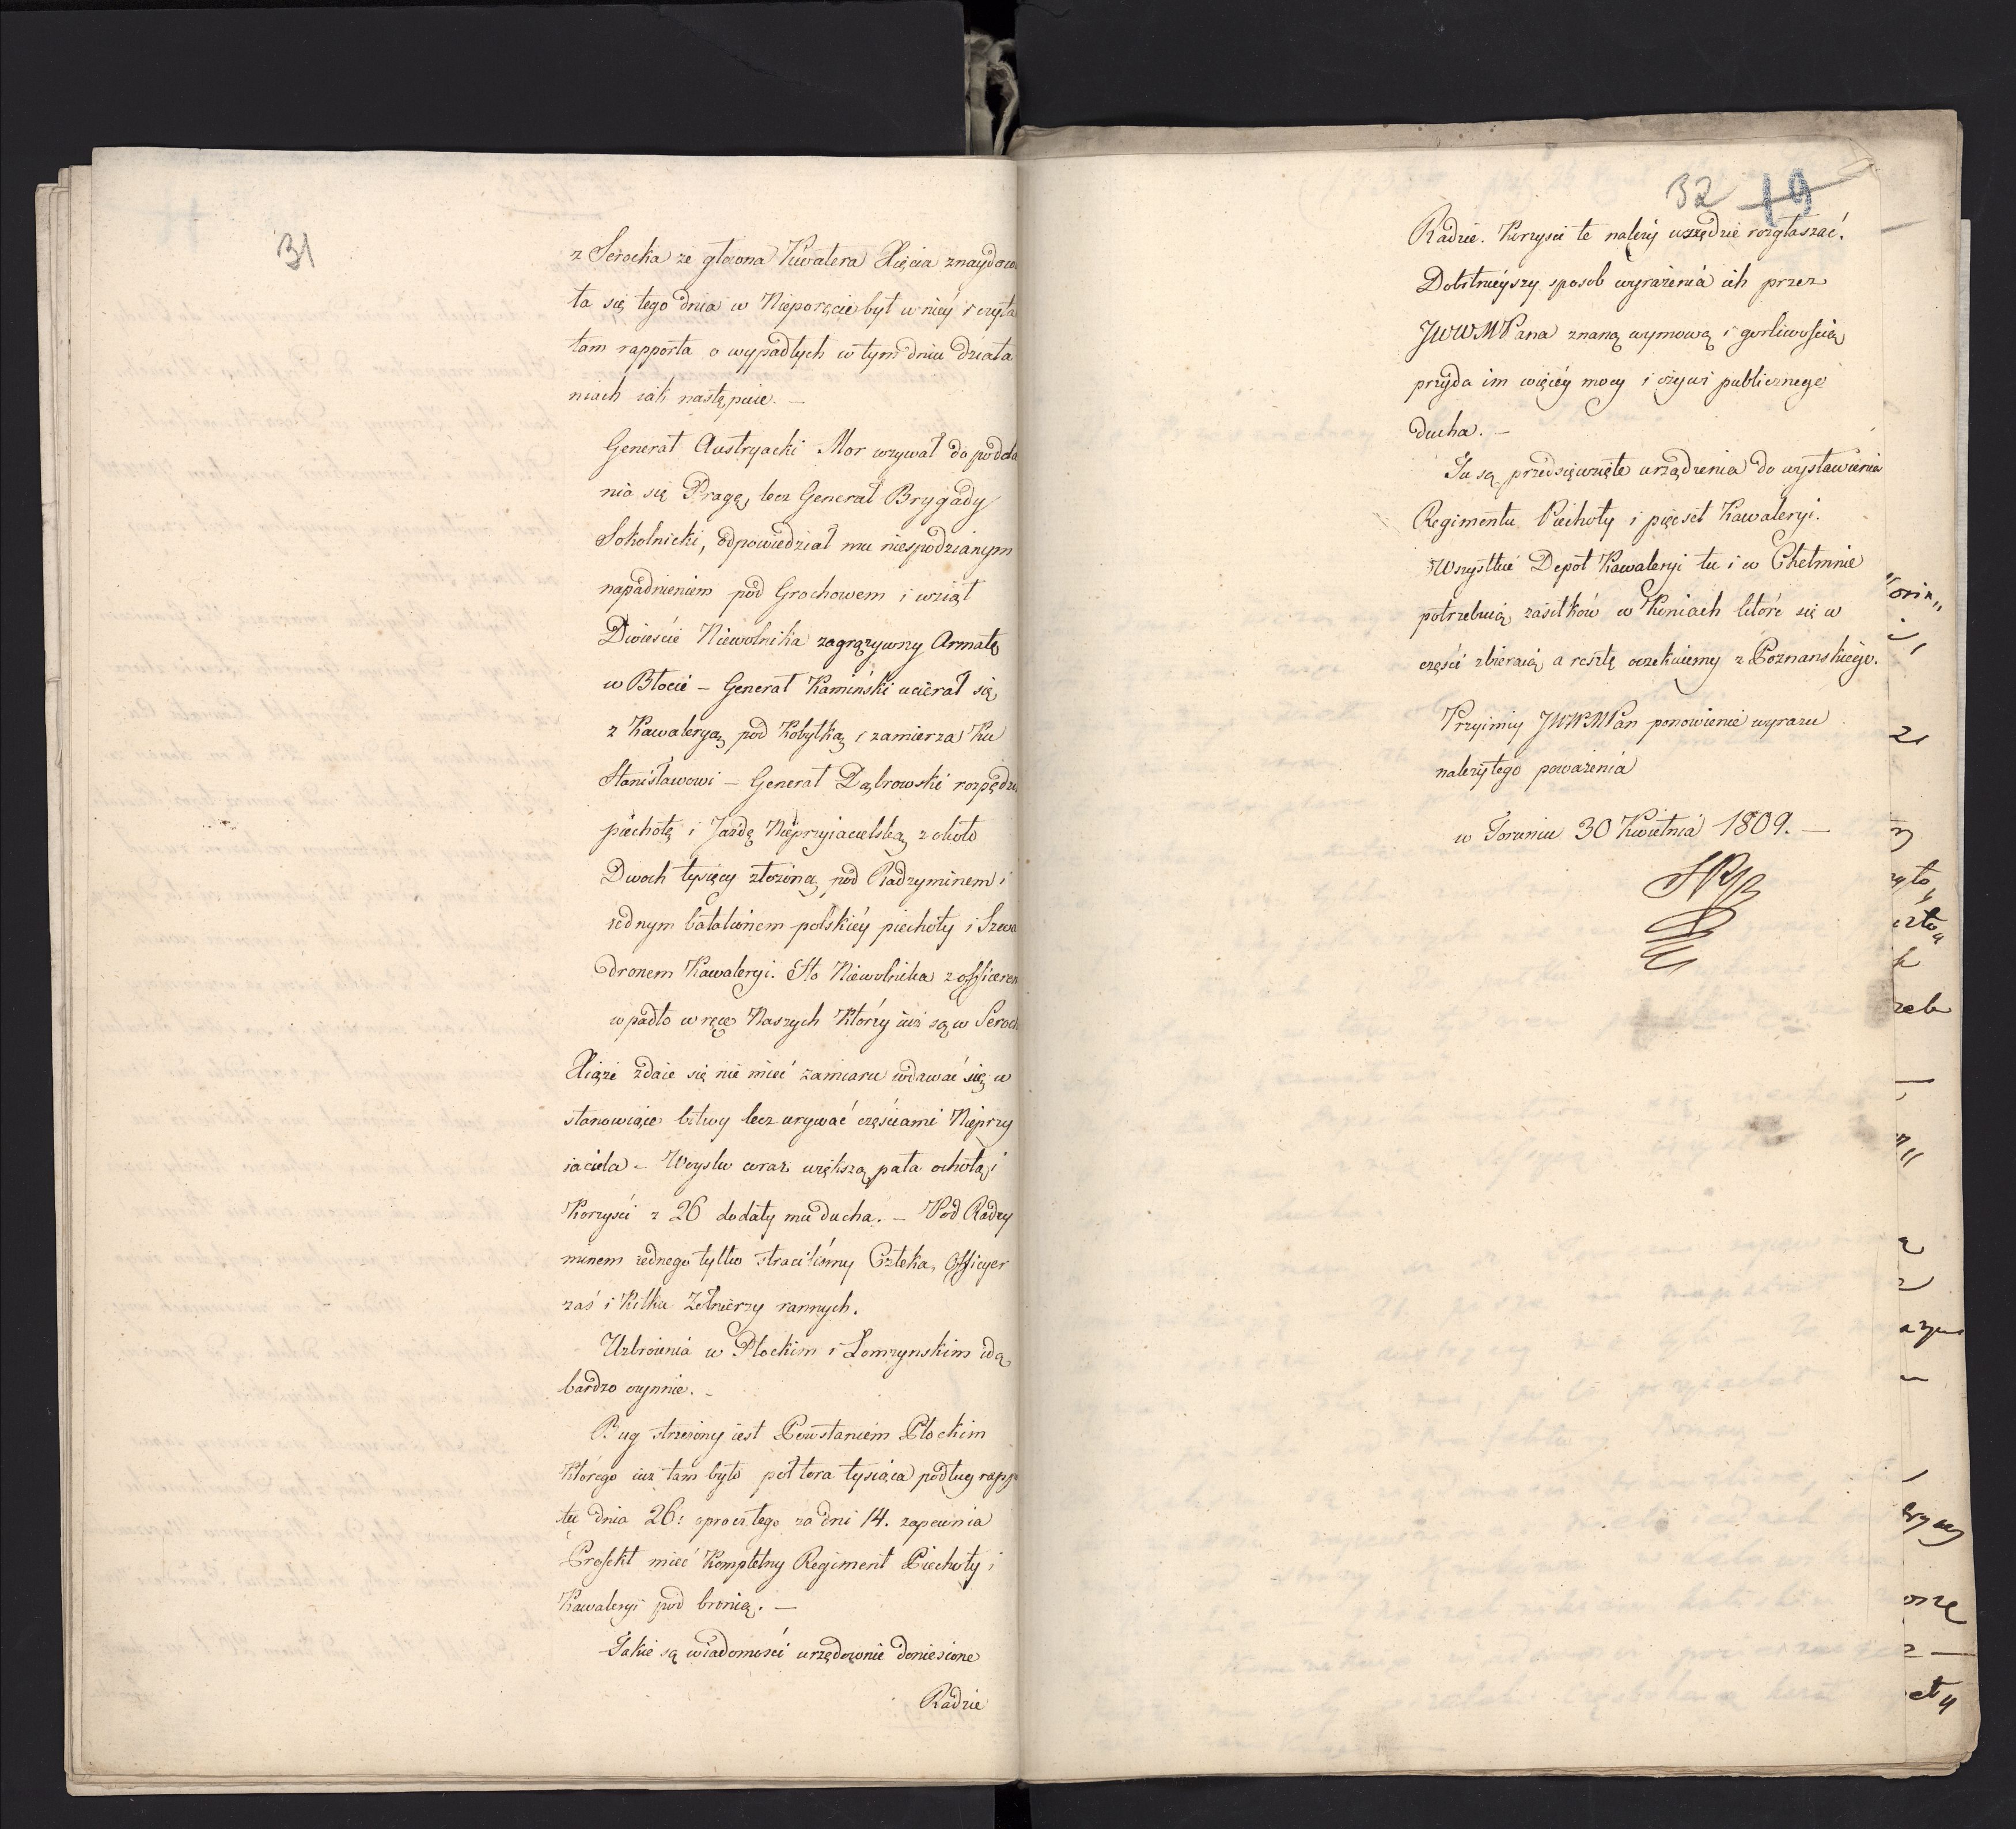 31
z Serocka że głowna Kwatera Xięcia znaydowa
ła się tego dnia w Nieporęcie był w niéy i czyta
tam rapporta o wypadłych w tym dniu działa
niach iak następuie. —
Generał Austryacki Mor wzywał do podda
nia się Pragę, lecz Generał Brygady
Sokolnicki, odpowiedział mu niespodzianym
napadnieniem pod Grochowem i wziął
Dwieście Niewolnika zagrązywszy Armatę
w Błocie – Generał Kamiński ucierał się
z Kawaleryą pod Kobyłką i zamierza Ku
Stanisławowi – Generał Dąbrowski rozpędził
piechotę i Jazdę Nieprzyiacielską z około
Dwoch tysięcy złożoną pod Radzyminem i
iednym batalionem polskiéy piechoty i Szwa
dronem Kawaleryi. Sto Niewolnika z officerem
wpadło w ręce Naszych Którzy iuż są w Seroc
Xiąże zdaie się nie mieć zamiaru wdawać się w
stanowiące bitwy lecz urywać częściami Nieprzy
iaciela – Woysko coraz większą pała ochotą i
Korzyści z 26 dodały mu ducha. – Pod Radzy
minem iednego tylko straciliśmy Człeka, Officyer
zaś i Kilku Żołnierzy rannych.
Uzbroienia w Płockim i Łomzynskim idą
bardzo czynnie. –
Bug strzeżony iest Powstaniem Płockim
Którego iuż tam było pół tora tysiąca podług rappo
tu dnia 26: oprocz tego za dni 14. zapewnia
Prefekt mieć Kompletny Regiment Piechoty i
Kawaleryi pod bronią. —
Takie są wiadomości urzędownie doniesione
Radzie
32 19
Radzie. Korzyści te należy wszędzie rozgłaszać.
Dobitnieyszy sposob wyrażenia ich przez
JWWMPana znaną wymową i gorliwością
przyda im więcéy mocy i ożywi publicznego
ducha. –
Tu są przedsięwzięte urządzenia do wystawienia
Regimentu Piechoty i pięcset Kawaleryi.
Wszystkie Depot Kawaleryi tu i w Chełmnie
potrzebuią zasiłków w Koniach które się w
części zbieraią a resztę oczekuiemy z Poznanskiego.
Przyimiy JWWMPan ponowienie wyrazu
należytego poważenia
w Toruniu 30 Kwietnia 1809. —